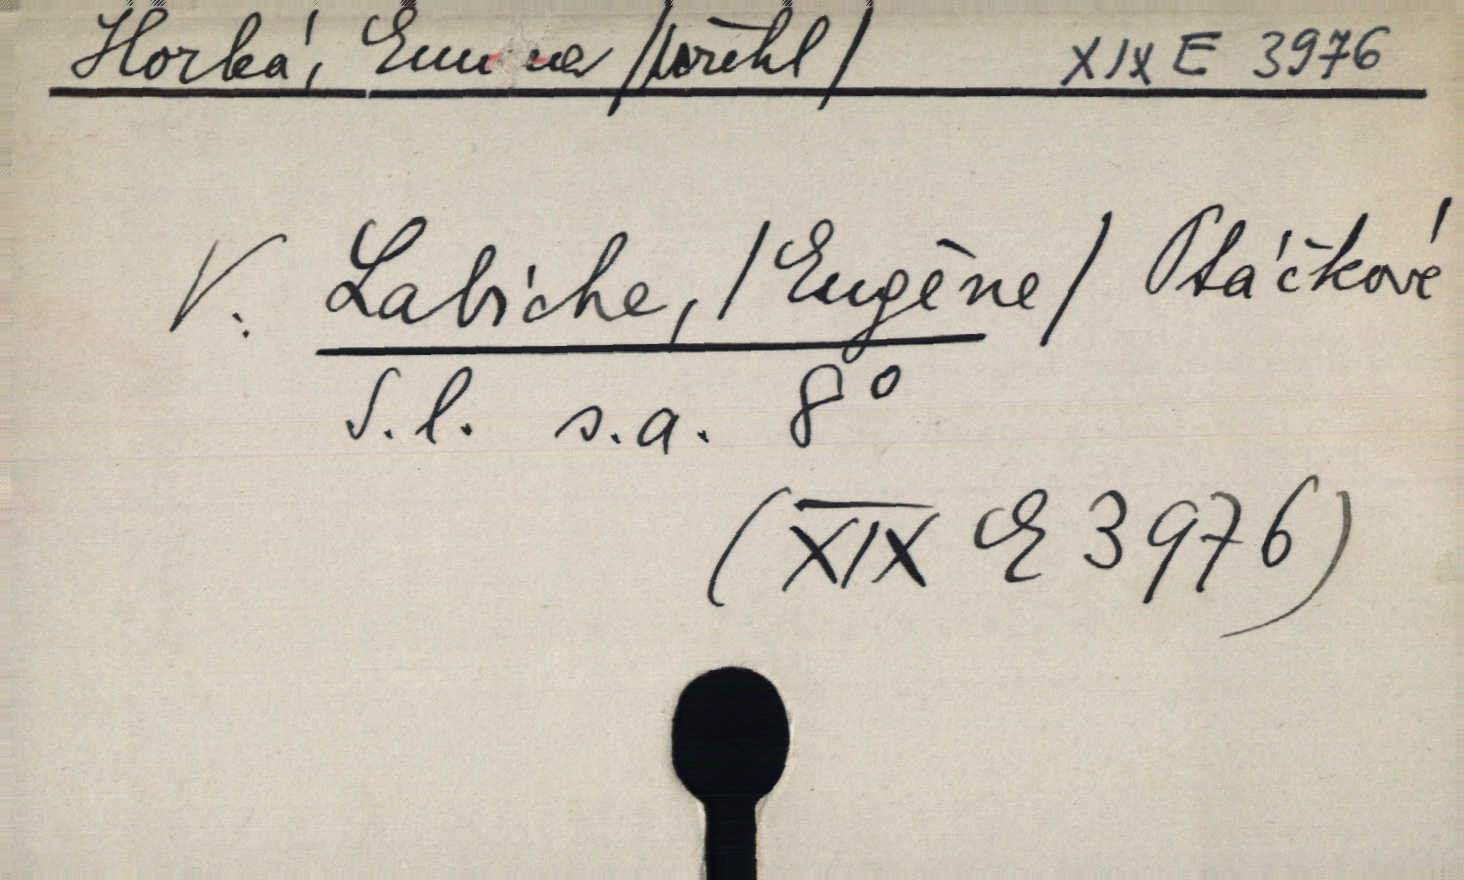 Horká, Emma /přel/ XIX E 3976
V. Labiche, /Eugène/ Ptáčkové
S.l. s.a. 8°
(XIX E 3976)